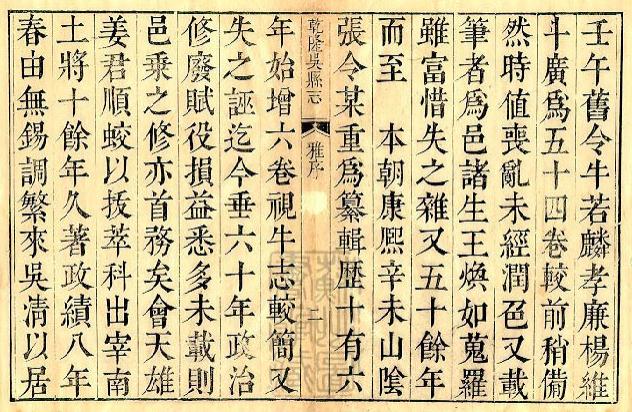 壬午舊令牛若麟孝廉楊維
斗廣爲五十四卷較前稍備
然時值喪亂未經潤色又載
筆者爲邑諸生王煥如蒐羅
雖富惜失之雜又五十餘年
而至　本朝康熙辛未山陰
張令某重爲纂輯歴十有六
乾隆吳縣志
雅序
二
年始增六卷視牛志較簡又
失之誣迄今垂六十年政治
修廢賦役損益悉多未載則
邑乘之修亦首務矣會天雄
姜君順蛟以拔萃科出宰南
土將十餘年久著政績八年
春由無錫調繁來吳凊以居